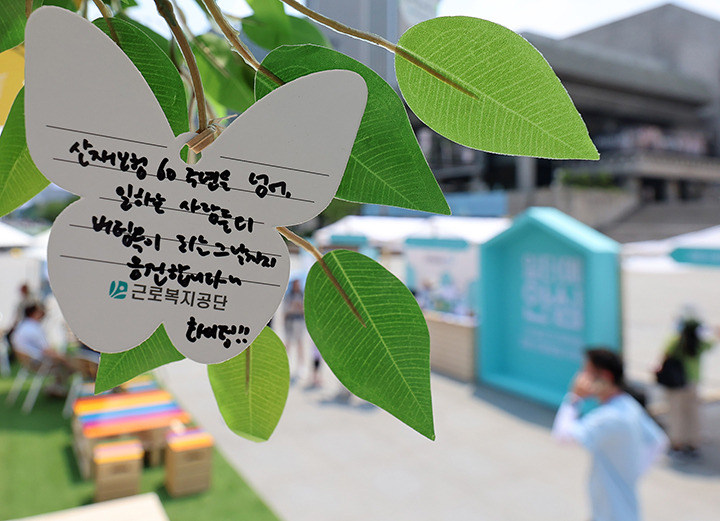 산재보험 60주년을 넘어,
일하는 사람들의
버팀목이 되는 그날까지
응원합니다~
근로복지공단
화이팅!!
안심